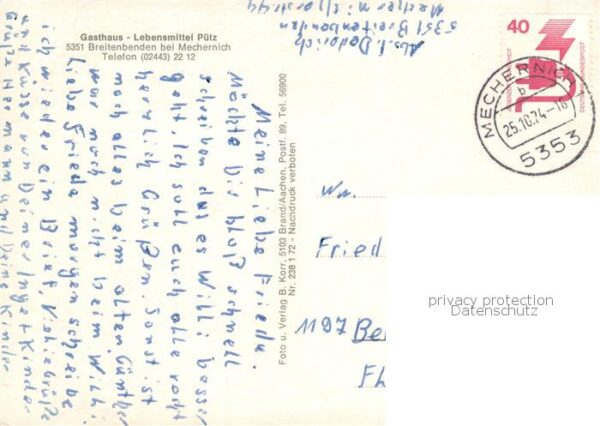 Gasthaus - Lebensmittel Pütz
5351 Breitenbenden bei Mechernich
Telefon (02443) 22 12
Meine Liebe Friede.
Möchte Dir bloß schnell
schreiben das es Willi besser
geht. Ich soll euch alle recht
herzlich Grüßen. Sonst ist
noch alles beim alten. Günther
war noch nicht beim Willi.
Liebe Friede morgen schreibe
ich wieder ein Brief. Viele Grüße
und Küsse von Deiner Inge + Kinder
Grüße Hermann und Deine Kinder
Foto u. Verlag B. Korr, 5103 Brand/Aachen, Postf. 89, Tel. 56900
Nr. 238 1 72 - Nachdruck verboten
Abs. I.
5351 Breitenbenden
40
DEUTSCHE BUNDESPOST
MECHERNICH 1
b
25.10.74-16
5353
Fried
1197 Be
privacy protection
Datenschutz